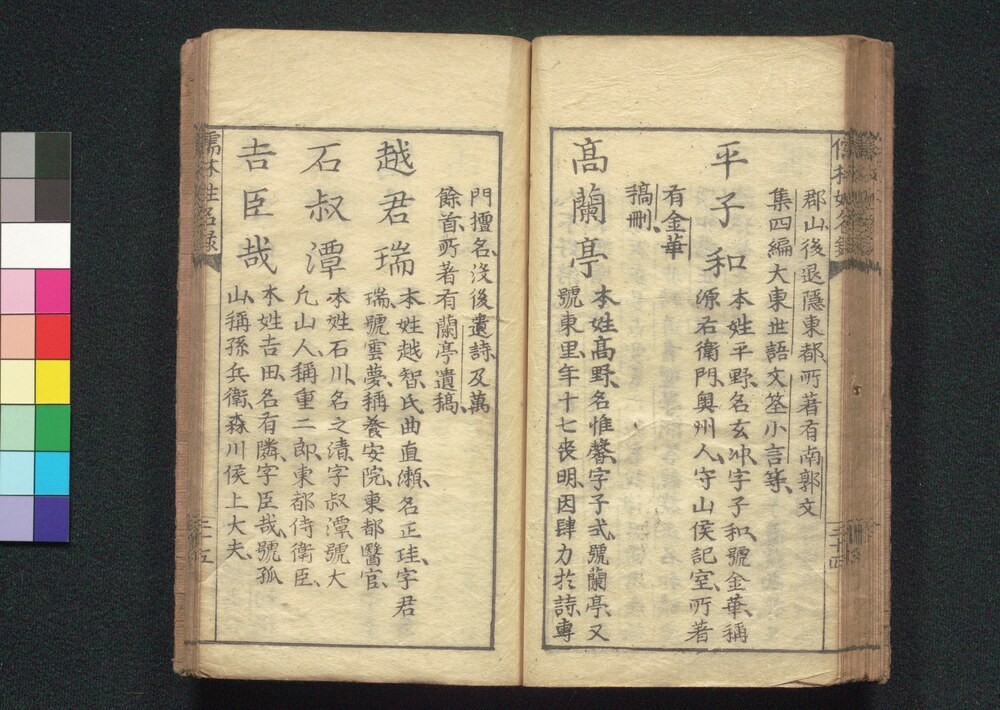 郡山後退隱東都所著有南郭文
集四編大東世語文筌小言等
平子和
本姓平野名玄冲字子和號金華稱
源右衛門奧州人守山侯記室所著
有金華
稿刪
高蘭亭
本姓高野名惟馨字子式號蘭亭又
號東里年十七喪明因肆力於詩專
三十四
門擅名沒後遺詩及萬
餘首所著有蘭亭遺稿
越君瑞
本姓越智氏曲直瀨名正珪字君
瑞號雲夢稱養安院東都醫官
石叔潭
本姓石川名之清字叔潭號大
凢山人稱重二郎東都侍衛臣
吉臣哉
本姓吉田名有隣字臣哉號孤
山稱孫兵衛森川侯上大夫
儒林姓名録
三十五